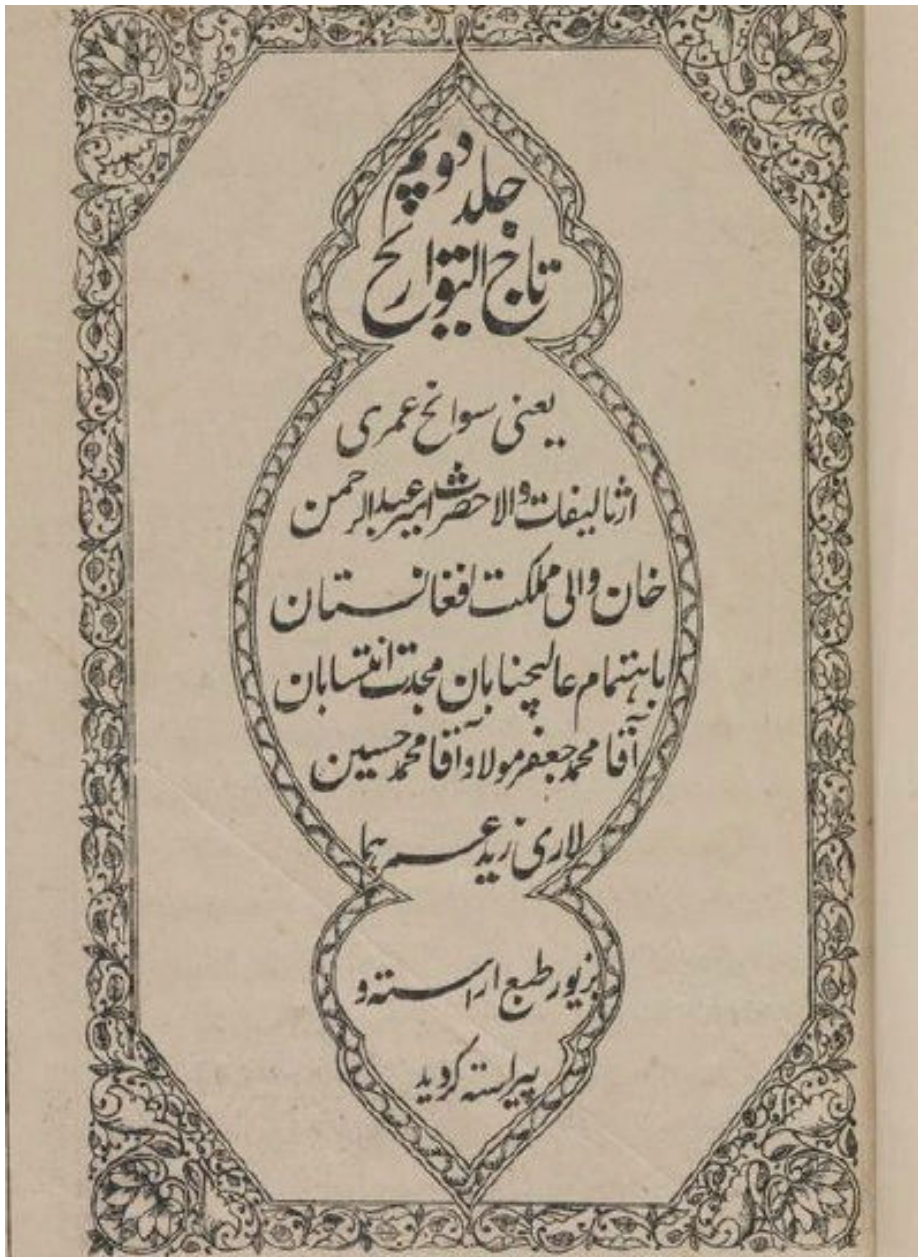 جلد دویم
تاج التواریخ
یعنی سوانح عمری
از تالیفات والاحضرت امیر عبدالرحمن
خان والی مملکت افغانستان
باهتمام عالیجنابان مجدت انتسابان
آقا محمد جعفر مولا و آقا محمد حسین
لاری زید عمرهما
بزیور طبع اراسته و
پیراسته کردید